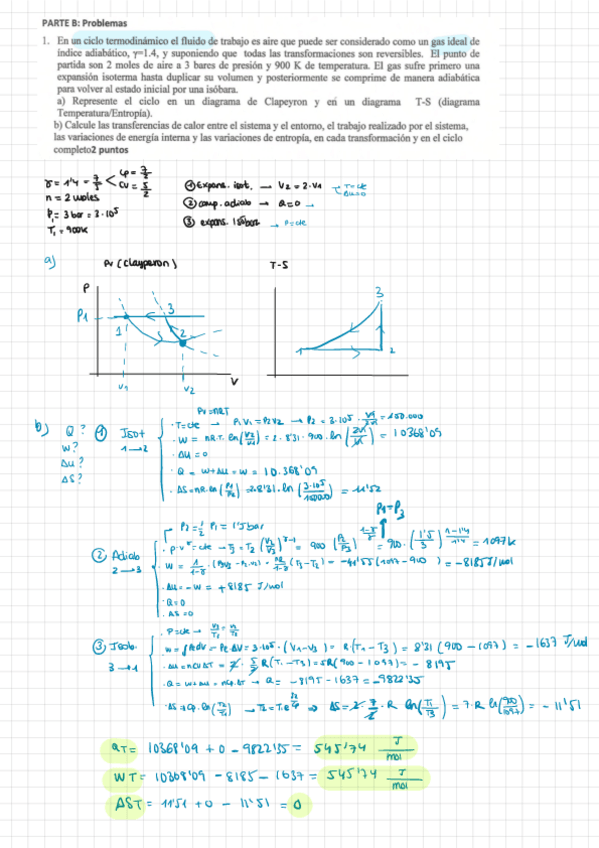 PARTE B: Problemas
1. En un ciclo termodinámico el fluido de trabajo es aire que puede ser considerado como un gas ideal de
índice adiabático, γ=1.4, y suponiendo que todas las transformaciones son reversibles. El punto de
partida son 2 moles de aire a 3 bares de presión y 900 K de temperatura. El gas sufre primero una
expansión isoterma hasta duplicar su volumen y posteriormente se comprime de manera adiabática
para volver al estado inicial por una isóbara.
a) Represente el ciclo en un diagrama de Clapeyron y en un diagrama T-S (diagrama
Temperatura/Entropía).
b) Calcule las transferencias de calor entre el sistema y el entorno, el trabajo realizado por el sistema,
las variaciones de energía interna y las variaciones de entropía, en cada transformación y en el ciclo
completo2 puntos
γ = 1'4 = 7/5 < Cp = 7/2
CV = 5/2
n = 2 moles
P1 = 3 bar = 3·10^5
T1 = 900K
① Expans. isot. → V2 = 2·V1
T=cte
Δu=0
② comp. adiab → Q=0 →
③ expans. isobar → P=cte
a)
PV (Clayperon)
T-S
P
P1
1
3
2
V1
V2
V
3
1
2
b)
Q?
W?
Δu?
ΔS?
① Isot
1→2
PV=nRT
· T=cte → P1V1=P2V2 → P2 = 3·10^5 · V1/2V1 = 150.000
· W = nR·T·ln(V2/V1) = 2·8'31·900·ln(2V1/V1) = 10368'09
· Δu = 0
· Q = W+Δu = W = 10.368'09
· ΔS = nR·ln(P1/P2) = 2·8'31·ln(3·10^5/150000) = 11'52
P1=P3
② Adiab
2→3
P2 = 1/2 P1 = 1'5 bar
· P·V^γ = cte → T3 = T2 (V2/V3)^γ-1 = 900 (P2/P3)^1-γ/γ = 900·(1'5/3)^1-1'4/1'4 = 1097K
· W = 1/1-γ · (P3V3 - P2·V2) = nR/1-γ (T3-T2) = -41'55 (1097-900) = -8185 J/mol
· Δu = -W = +8185 J/mol
· Q=0
· ΔS=0
③ Isob.
3→1
· P=cte →
W = ∫PdV = P2·ΔV = 3·10^5 · (V1-V3) = R(T1-T3) = 8'31 (900-1097) = -1637 J/mol
· Δu = nCV·ΔT = 2·5/2 R(T1-T3) = 5R(900-1097) = -8195
· Q = W+Δu = nCp·ΔT → Q = -8195-1637 = -9822'35
· ΔS = Cp·ln(T2/T1) → ⇒ ΔS = 2·7/2·R ln(T1/T3) = 7·R ln(900/1097) = -11'51
QT = 10368'09 + 0 - 9822'35 = 545'74 J/mol
WT = 10368'09 - 8185 - 1637 = 545'74 J/mol
ΔST = 11'51 + 0 - 11'51 = 0